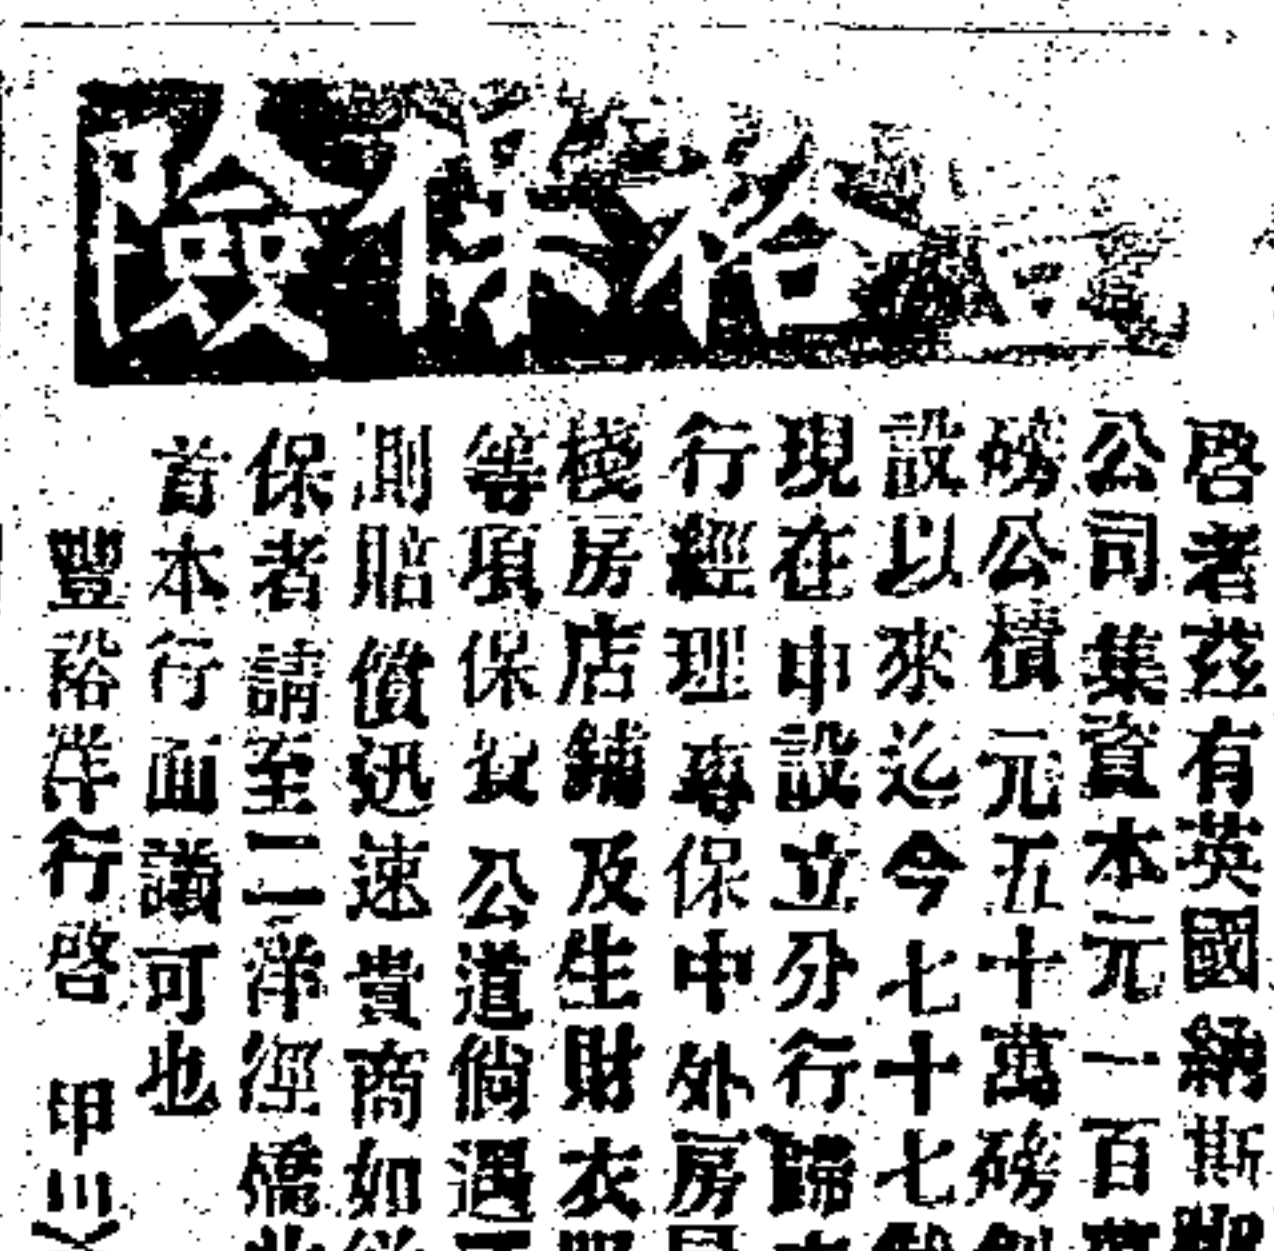 豐裕保險
啓者茲有英國納斯
公司集資本元一百萬
磅公積元五十萬磅創
設以來迄今七十七
現在申設立分行歸本
行經理專保中外房
棧房店鋪及生財衣服
等項保費公道倘遇不
測賠償迅速貴商如
保者請至二洋涇橋北
首本行面議可也
豐裕洋行啓 甲